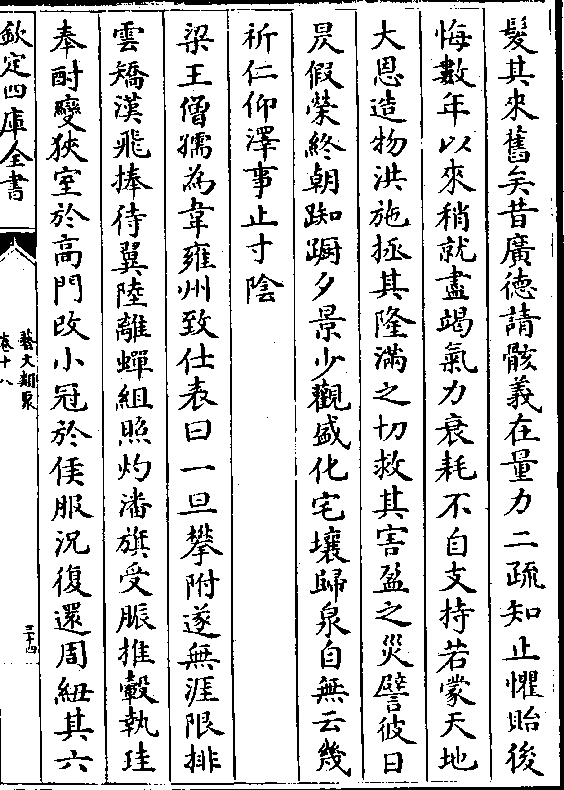 髮其來舊矣昔廣德請骸義在量力二疏知止懼貽後
悔數年以來稍就盡竭氣力衰耗不自支持若蒙天地
大恩造物洪施拯其隆滿之切救其害盈之災譬彼日
昃假榮終朝踟蹰夕景少觀盛化宅壤歸泉自無云幾
祈仁仰澤事止寸陰
梁王僧孺為韋雍州致仕表曰一旦攀附遂無涯限排
雲矯漢飛捧待翼陸離蟬組照灼潘旗受脤推轂執珪
奉酎變狹室於高門改小冠於侯服況復還周紐其六
欽定四庫全書
藝文類聚
卷十八
三十四